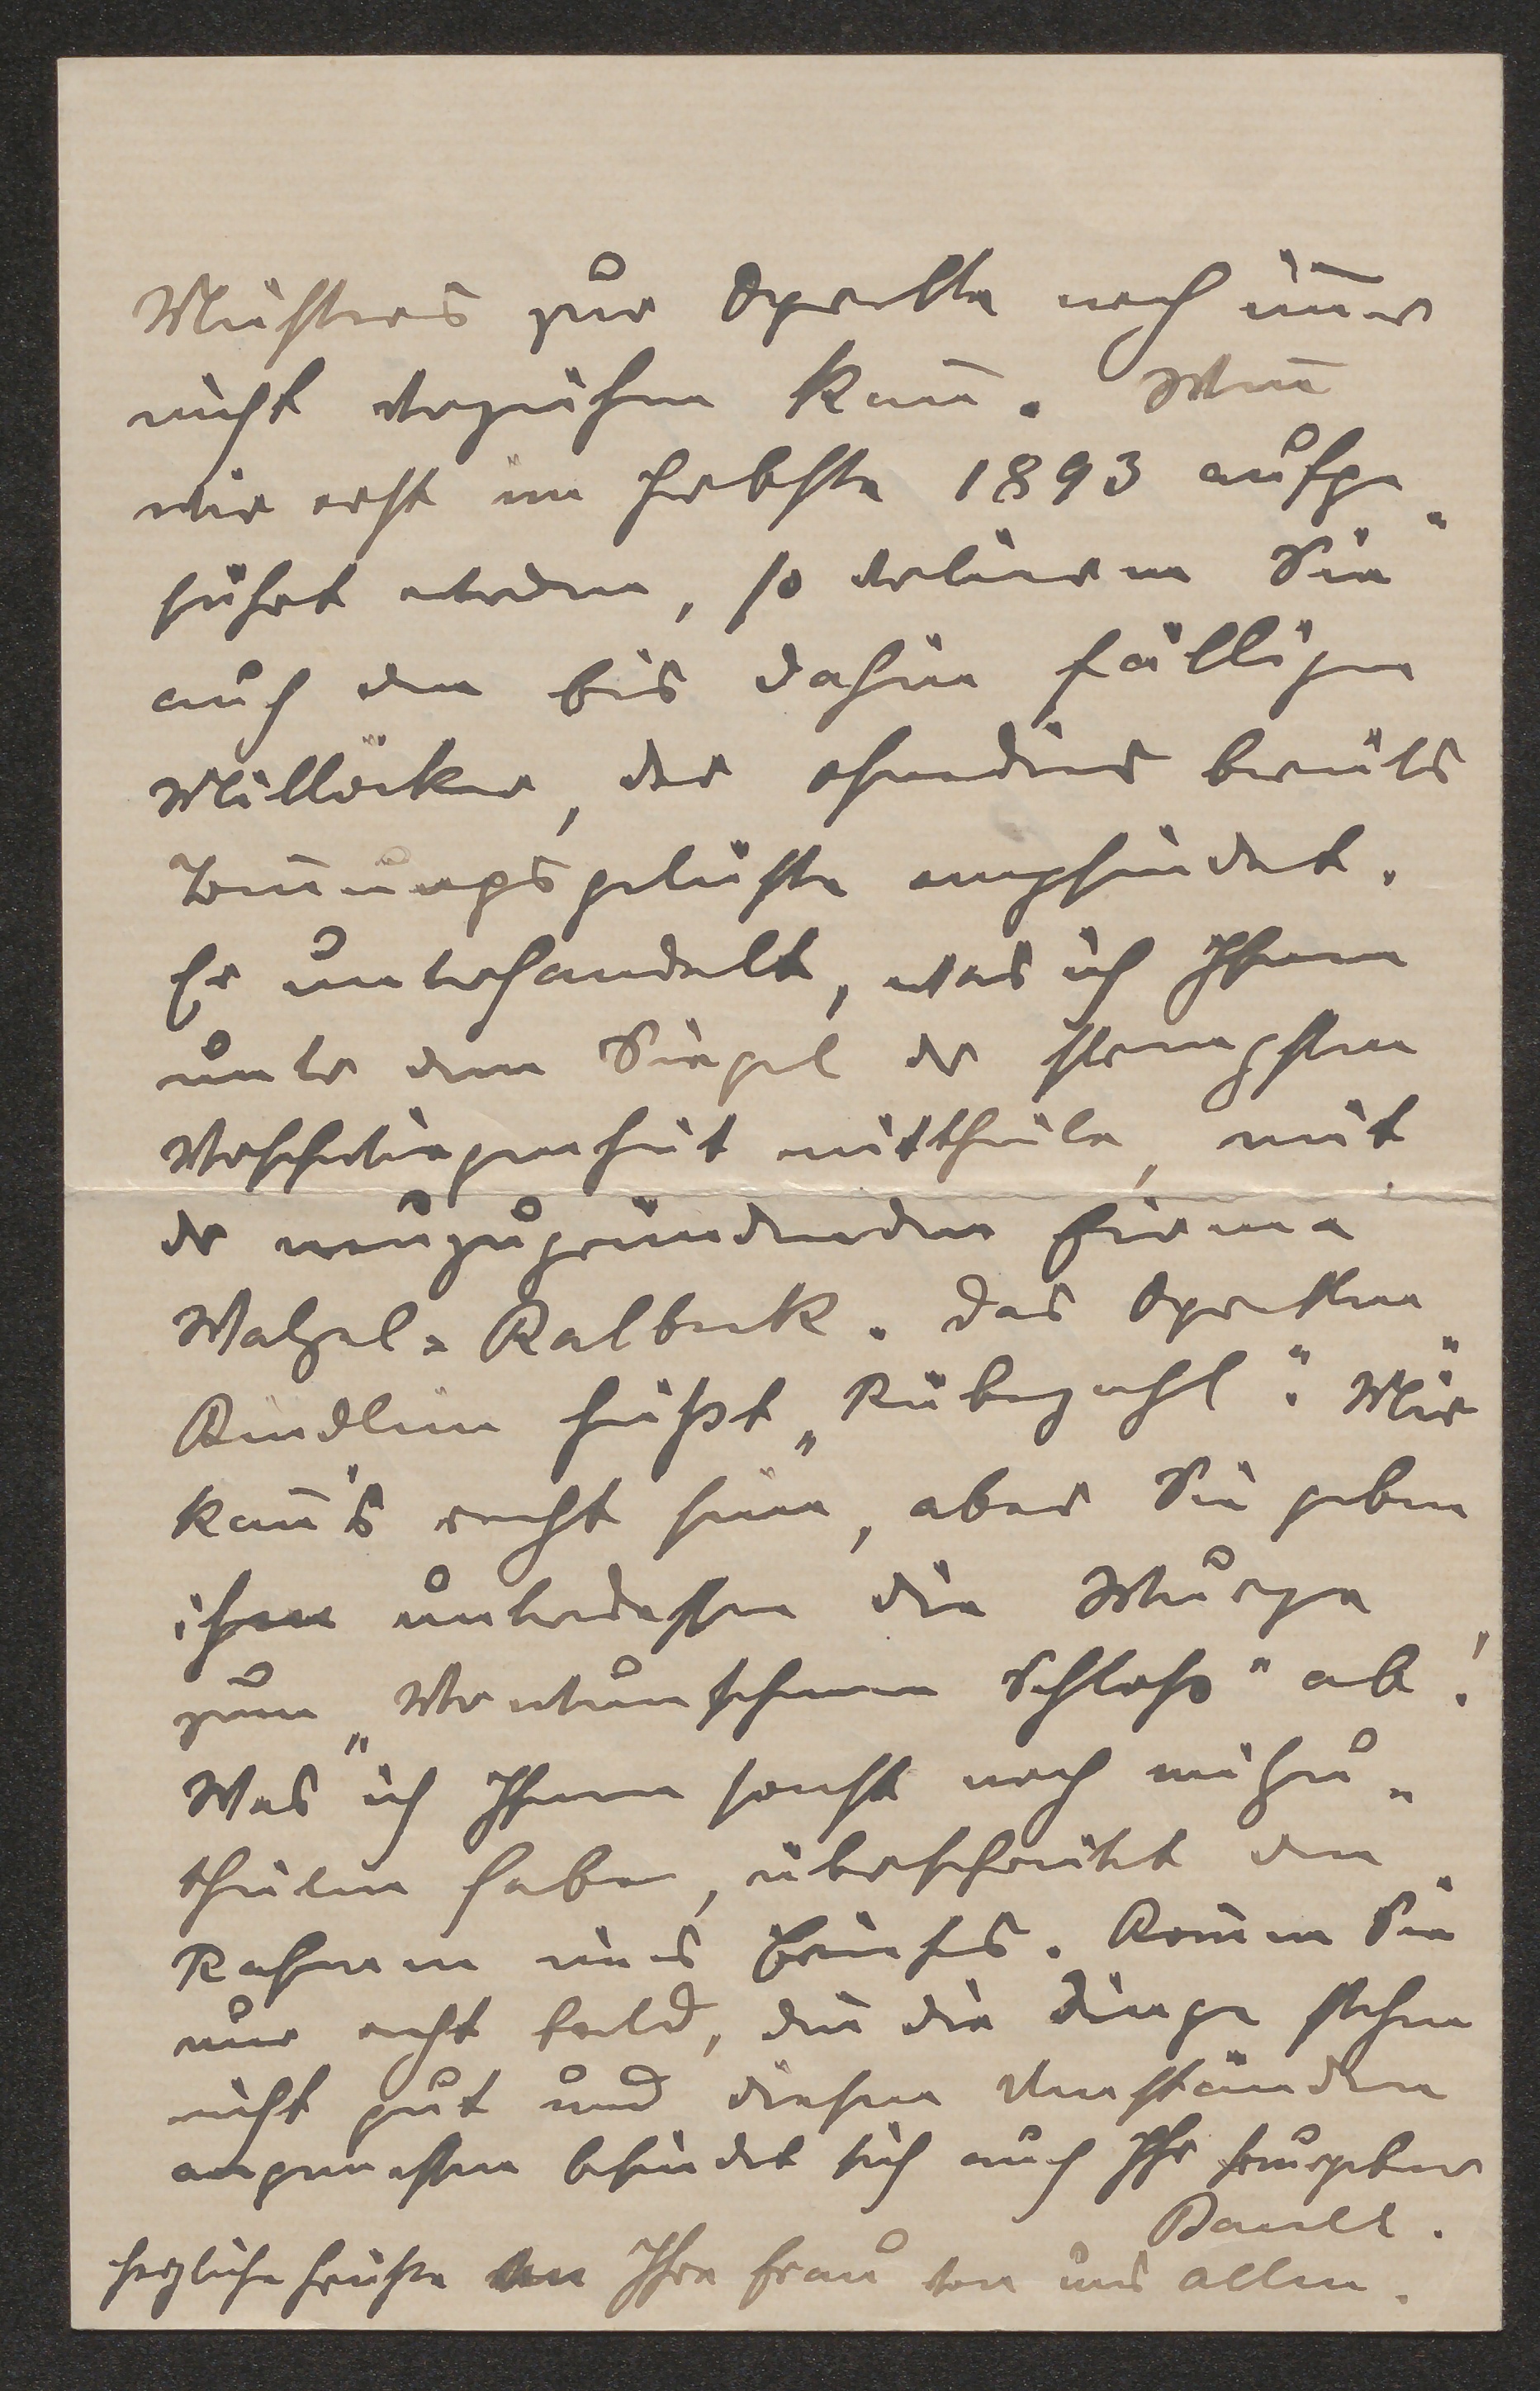 Meisters zur Operette noch im̄er
nicht verzeihen kan̄. Wen̄
wir erst im Herbste 1893 aufge-
führt werden, so verlieren Sie
auch den bis dahin fälligen
Millöcker, der ohnedies bereits
Tren̄ungsgelüste empfindet.
Er unterhandelt, was ich Ihnen
unter dem Siegel der strengsten
Verschwiegenheit mittheile, mit
der neuzugründenden Firma
Walzel-Kalbeck. Das Operetten-
Kindlein heißt „Rübezahl“. Mir
kan̄'s recht sein, aber Sie geben
ihm unterdessen die Wurzen
zum „Verwunschenen Schloß“ ab!
Was ich Ihnen sonst noch mitzu-
theilen habe, überschreitet den
Rahmen eines Briefes. Kom̄en Sie
nur recht bald, den̄ die Dinge stehen
nicht gut und diesen Umständen
angemessen befindet sich auch Ihr
Herzliche Grüße an Ihre Frau von uns allen.